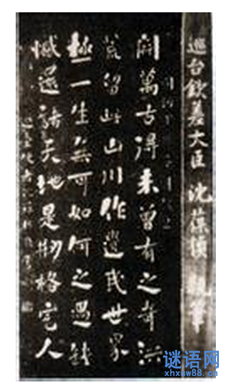 巡台欽差大臣 沈葆楨
開萬古得未曾有之奇洪
荒留此山川作遺民世界
極一生無可如何之遇缺
憾還諸天地是創格完人
谜语网
xhxsw88.cn